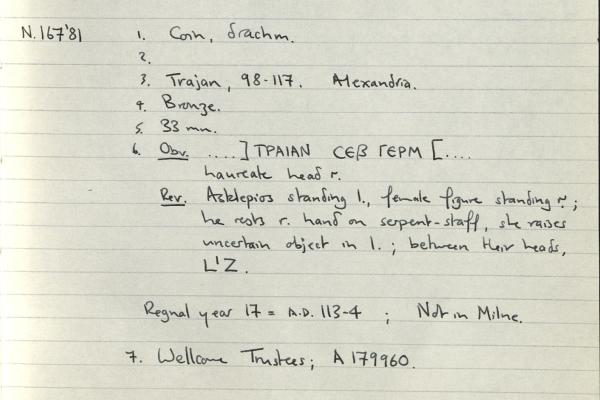 N.167'81 1. Coin, drachm.
2.
3. Trajan, 98-117. Alexandria.
4. Bronze.
5. 33 mm.
6. Obv. ....] ΤΡΑΙΑΝ CЄΒ ΓЄΡΜ [....
haureate head r.
Rev. Asklepios standing l., female figure standing r.;
he rests r. hand on serpent-staff, she raises
uncertain object in l.; between their heads,
L'Z.
Regnal year 17 = A.D. 113-4 ; Not in Milne.
7. Wellcome Trustees; A 179960.